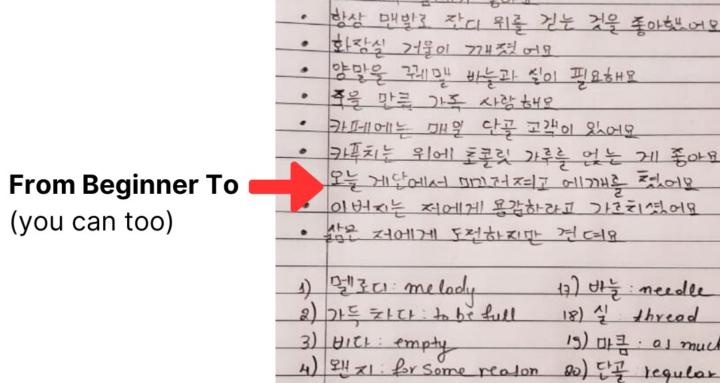 From Beginner To
(you can too)
• 항상 맨발로 잔디 위를 걷는 것을 좋아했어요
• 화장실 거울이 깨졌어요
• 양말을 꿰맬 바늘과 실이 필요해요
• 죽을 만큼 가족 사랑해요
• 카페에는 매일 단골 고객이 있어요
• 카푸치는 위에 초콜릿 가루를 얹는 게 좋아요
오늘 계단에서 어깨를 쳤어요
• 저에게 용감하라고 가르치셨어요
• 삶은 저에게 도전하지만 견뎌요
1) 멜로디 : melody
2) 가득 차다 : to be full
3) 비다 : empty
4) 왠지 : for some reason
17) 바늘 : needle
18) 실 : thread
19) 마큼 : as much
20) 단골 : regular